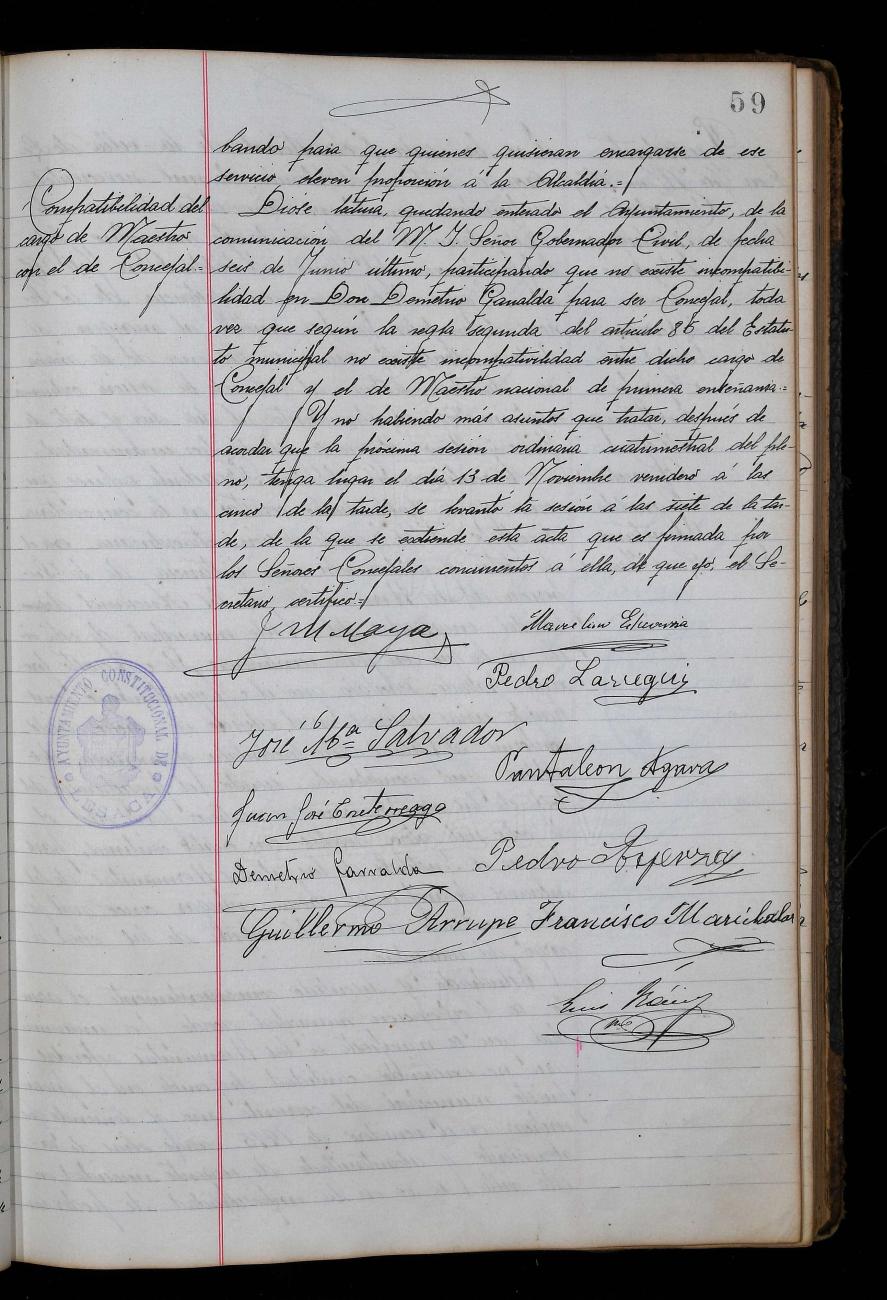 59
bando para que quienes quisieran encargarse de ese
servicio eleven proposición á la Alcaldía.=
Compatibilidad del
cargo de Maestro
con el de Concejal=
Diose lectura, quedando enterado el Ayuntamiento, de la
comunicación del M. I. Señor Gobernador Civil, de fecha
seis de Junio último, participando que no existe incompatibi-
lidad en Don Demetrio Garralda para ser Concejal, toda
vez que según la regla segunda del artículo 86 del Estatu-
to municipal no existe incompativilidad entre dicho cargo de
Concejal y el de Maestro nacional de primera enseñanza=
Y no habiendo más asuntos que tratar, después de
acordar que la próxima sesión ordinaria cuatrimestral del ple-
no, tenga lugar el día 13 de Noviembre venidero á las
cinco de la tarde, se levantó la sesión á las siete de la tar-
de, de la que se extiende esta acta que es firmada por
los Señores Concejales concurrentes á ella, de que yo, el Se-
cretario, certifico=
J M Maya
Marcelino Echeverria
Pedro Larregui
José Mª Salvador
Pantaleon Agara
Juan José Endterreaga
Demetrio Garralda
Pedro Apezzey
Guillermo Arrupe
Francisco Marichalar
Luis
AYUNTAMIENTO CONSTITUCIONAL DE
LESACA